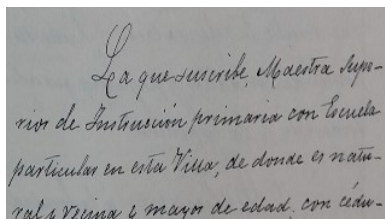 La que suscribe, Maestra Supe-
rior de Instrucción primaria con Escuela
particular en esta Villa, de donde es natu-
ral y vecina y mayor de edad, con cédu-